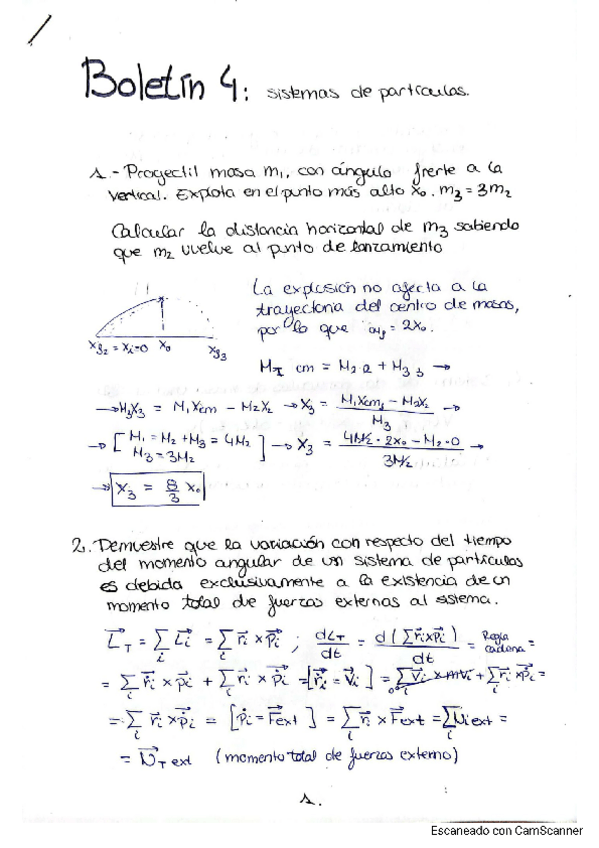 Boletín 4: sistemas de partículas.
1.- Proyectil masa m₁, con ángulo frente a la
vertical. Explota en el punto más alto x₀. m₃ = 3m₂
Calcular la distancia horizontal de m₃ sabiendo
que m₂ vuelve al punto de lanzamiento
La explosión no afecta a la
trayectoria del centro de masas,
por lo que = 2x₀.
x_f₂ = x_i = 0 x₀ x_f₃
cm = M₂·0 + M₃ →
→ M₃x₃ = M₁x_cm − M₂x₂ → x₃ = (M₁x_cm − M₂x₂)/M₃ →
→ [M₁ = M₂ + M₃ = 4M₂ M₃ = 3M₂] → x₃ = (4M₂·2x₀ − M₂·0)/3M₂ →
→ x₃ = 8/3 x₀
2. Demuestre que la variación con respecto del tiempo
del momento angular de un sistema de partículas
es debida exclusivamente a la existencia de un
momento total de fuerzas externas al sistema.
L⃗_T = Σ_i L⃗i = Σ_i r⃗i × p⃗i ; dL_T/dt = d(Σ r⃗i × p⃗i)/dt = Regla cadena =
= Σ_i ṙ⃗i × p⃗i + Σ_i r⃗i × ṗ⃗i = [ṙ⃗i = v⃗i] = Σ_i v⃗i × mv⃗i + Σ_i r⃗i × ṗ⃗i =
= Σ_i r⃗i × ṗ⃗i = [ṗi = F⃗ext] = Σ_i r⃗i × F⃗ext = Σ_i ext =
= T ext (momento total de fuerzas externo)
1.
Escaneado con CamScanner